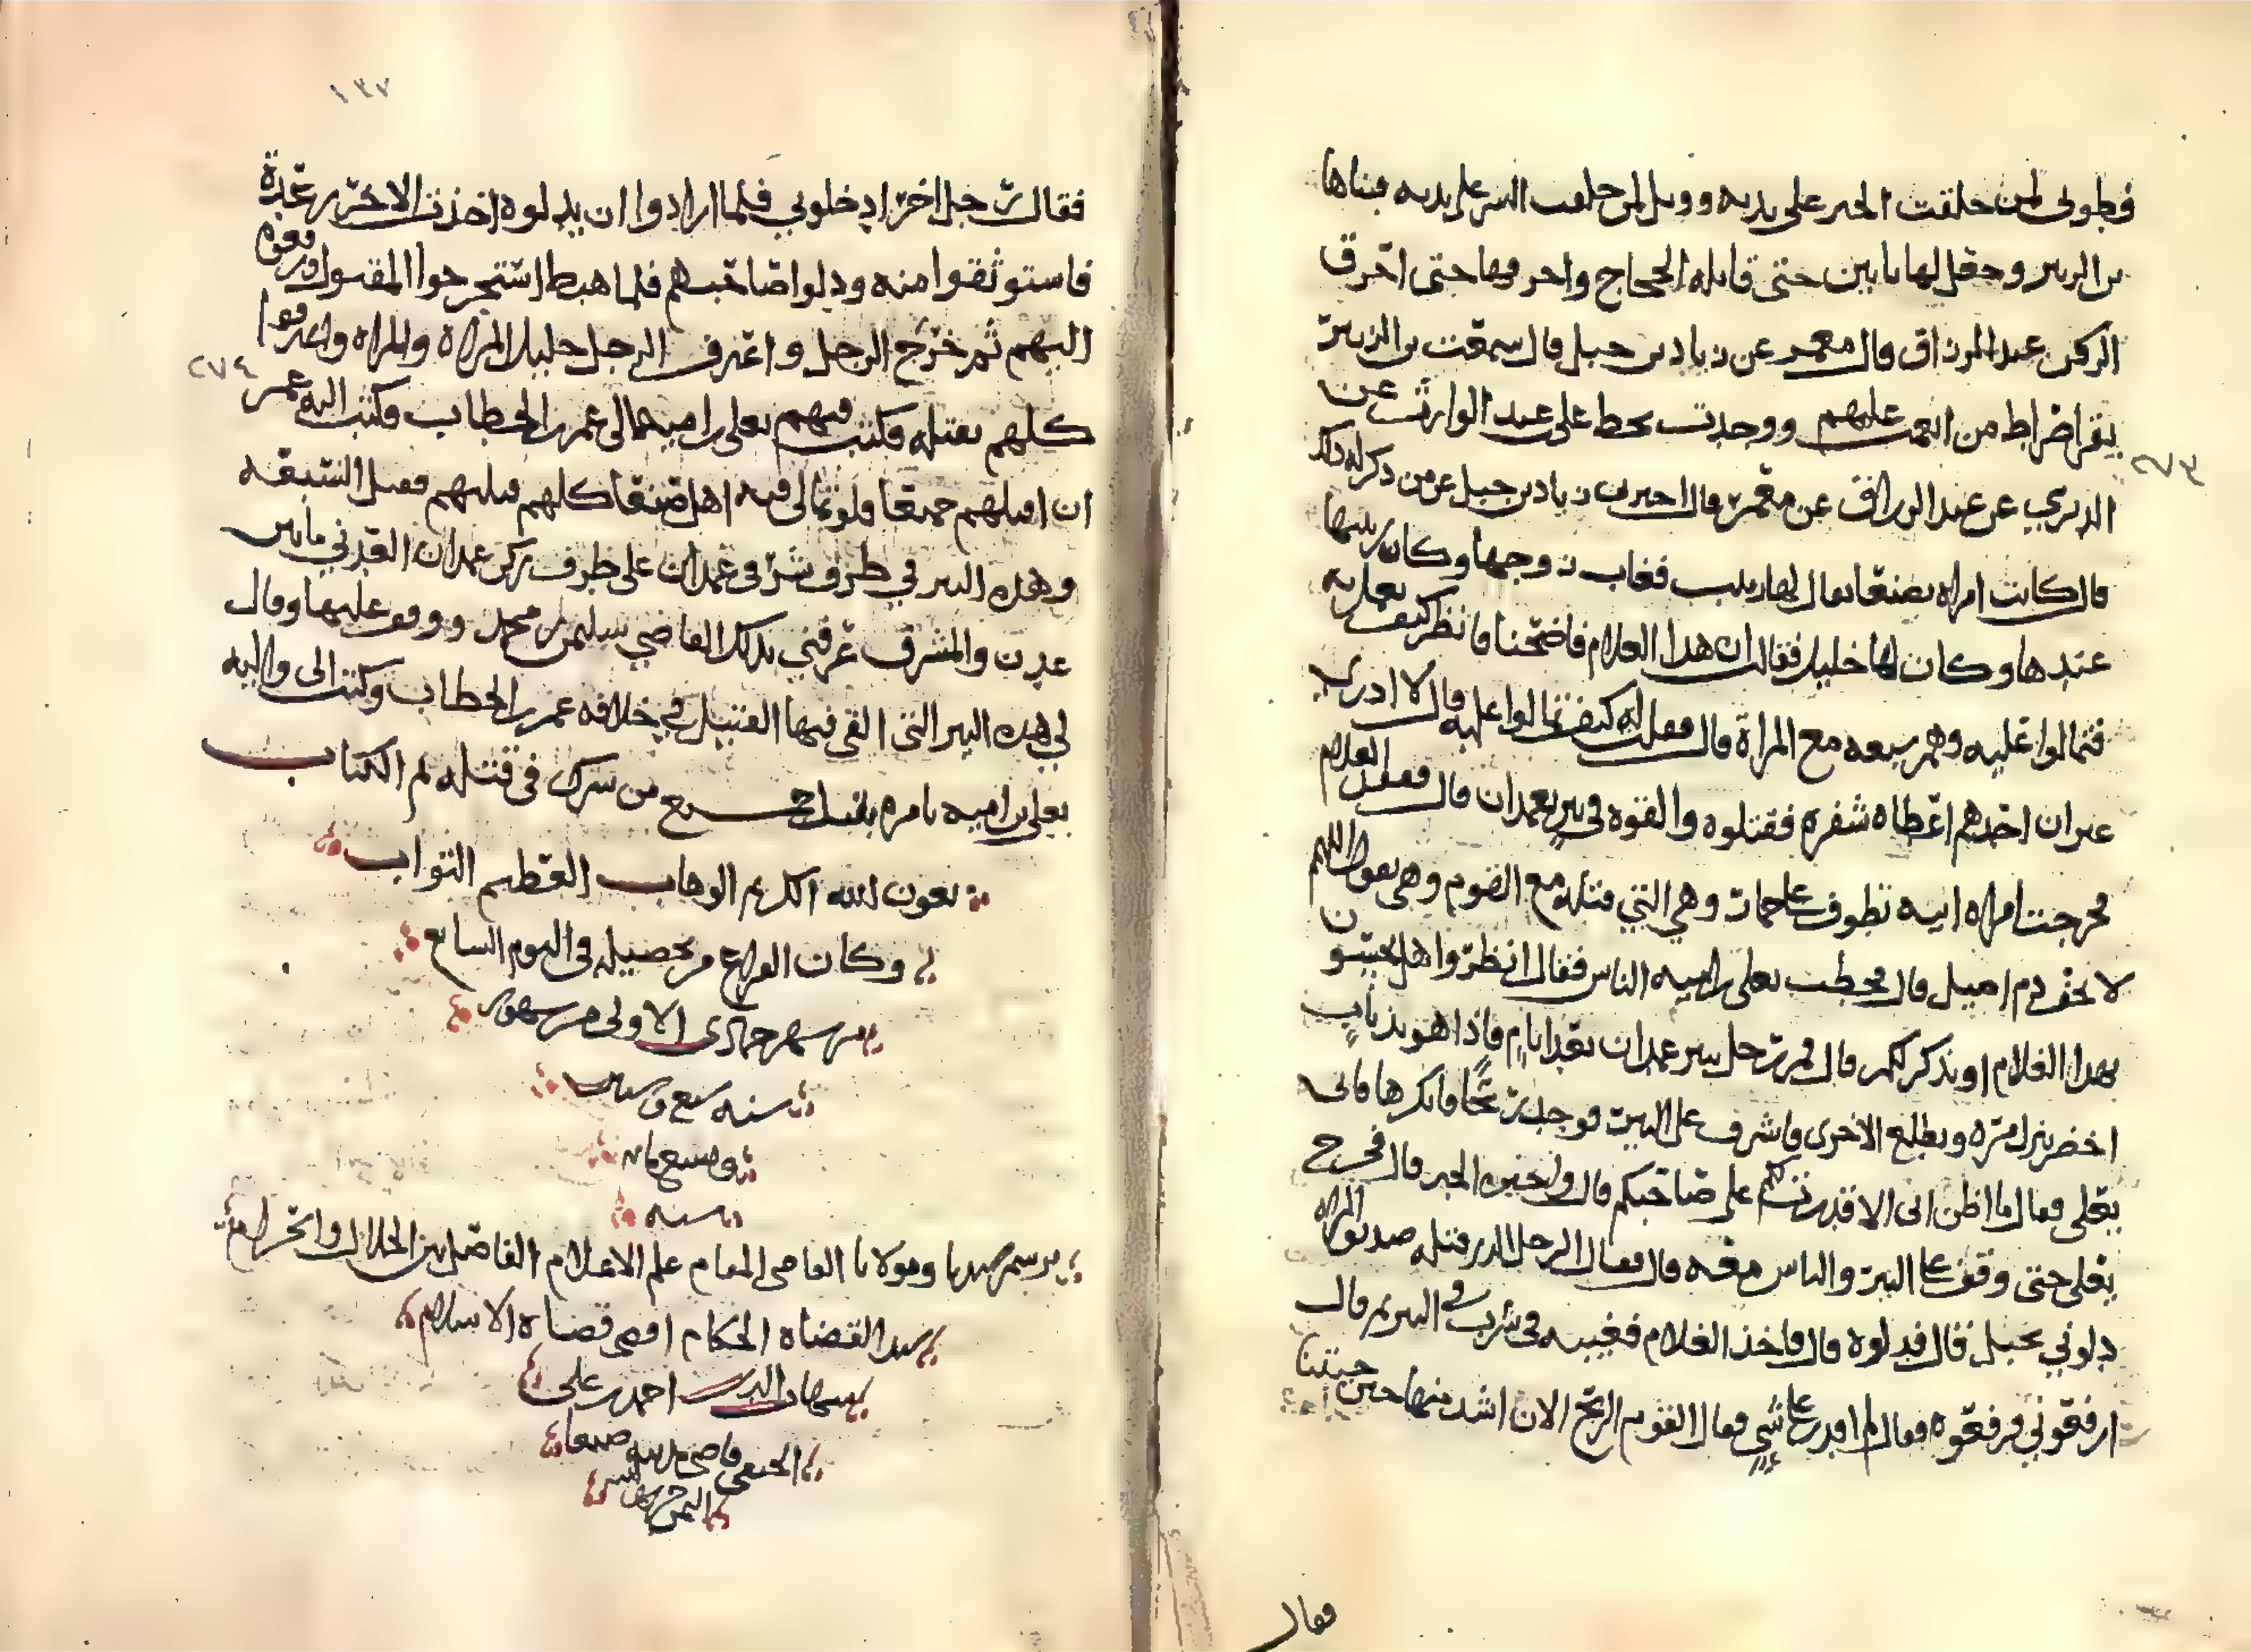 فطوبى لمن خلقت الخير على يديه وويل لمن خلقت الشر على يديه فبناها
بن الزبير وجعل لها بابين حتى قاتله الحجاج واحرقها حتى احرق
الركن عبد الرزاق قال معمر عن زياد بن جبل قال سمعت بن الزبير
يقرا صراط من انعمت عليهم ووجدت بخط علي عبد الوارث عن
الدبري عن عبد الرزاق عن معمر قال اخبرني زياد بن جبل عن من ذكر له ذلك
قال كانت امراه بصنعا يقال لها زينب فغاب زوجها وكان ربيبها
عندها وكان لها خليل فقالت ان هذا الغلام فاضحنا فانظر كيف نعمل به
فتمالوا عليه وهم سبعه مع المراة قال فقلت له كيف تمالوا عليه قال لا ادري
غير ان احدهم اعطاه شفره فقتلوه والقوه في بير بغمدان قال ففقد الغلام
فخرجت امراه ابيه تطوف على حمار وهي التي قتلته مع القوم وهي تقول اللهم
لا تخف دم اصيل قال فخطب يعلى بن اميه الناس فقال انظروا هل تحسون
بهذا الغلام او يذكر لكم قال فمر رجل ببير غمدان بعد ايام فاذا هو بذباب
اخضر ينزل مره ويطلع الاخرى فاشرف على البير فوجد ريحا فانكرها فاتى
يعلى فقال ما اظن اني الا قد دللتكم على صاحبكم قال واخبره الخبر قال فخرج
يعلى حتى وقف على البير والناس معه قال فقال الرجل الذي قتله صديق المراه
دلوني بحبل قال فدلوه قال فاخذ الغلام فغيبه في سرب في البير ثم قال
ارفعوني فرفعوه فقال لم اقدر على شي فقال القوم الريح الان اشد منها حين جيتنا
فقال
١٣٧
فقال رجل اخر ادخلوني فلما ارادوا ان يدلوه اخذت الاخر رعدة
فاستوثقوا منه ودلوا صاحبهم فلما هبط استخرجوا المقتول ورفعوه
اليهم ثم خرج الرجل واعترف الرجل خليل المراة والمراه واعترفوا
كلهم بقتله فكتب فيهم يعلى بن اميه الى عمر بن الخطاب فكتب اليه عمر
ان اقتلهم جميعا فلو تمالى فيه اهل صنعا كلهم قتلتهم فقتل السبعه
وهذه البير في طرف شرقي غمدان على طرف ركن غمدان العدني مابين
عدن والمشرق عرفني بذلك القاضي سليمن بن محمد ووقف عليها وقال
لي هذه البير التي القي فيها القتيل في خلافه عمر بن الخطاب وكتب الى واليه
يعلى بن اميه يامره بقتل جميع من شرك في قتله تم الكتاب
بعون الله الكريم الوهاب العظيم التواب
وكان الفراغ من تحصيله في اليوم السابع
من شهر جمادى الاولى من شهور
سنه سبع وستين
وسبع مايه
سنه
برسم سيدنا ومولانا القاضي المقام علم الاعلام الفاصل بين الحلال والحرام
سيد القضاه الحكام اقضى قضاة الاسلام
شهاب الدين احمد بن علي
الحنفي قاضي مدينه صنعا